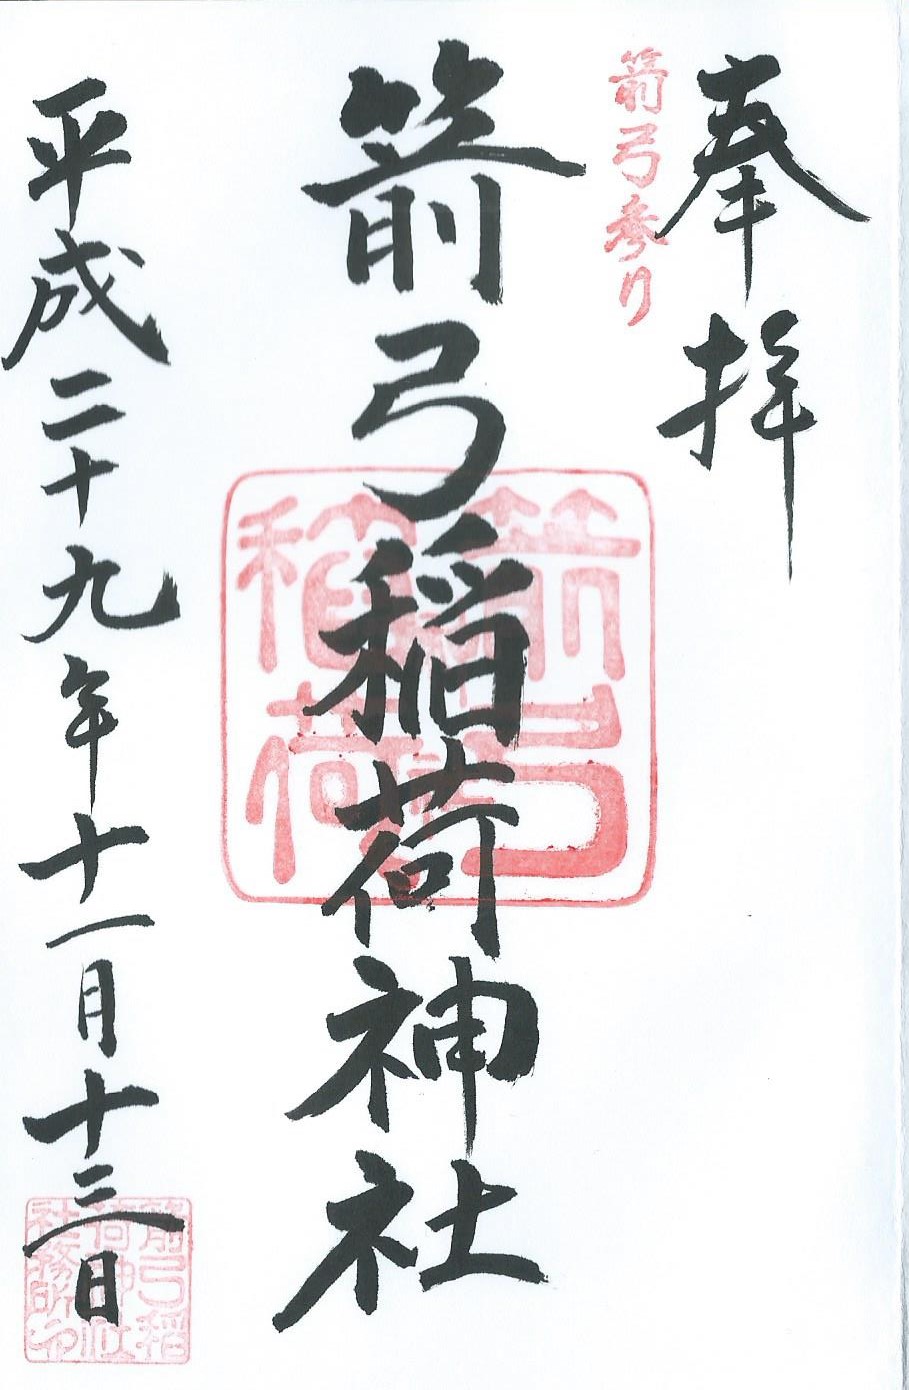 奉拝
箭弓参り
箭弓稲荷神社
箭弓稲荷
平成二十九年十一月十三日
箭弓稲
荷神社
社務所印